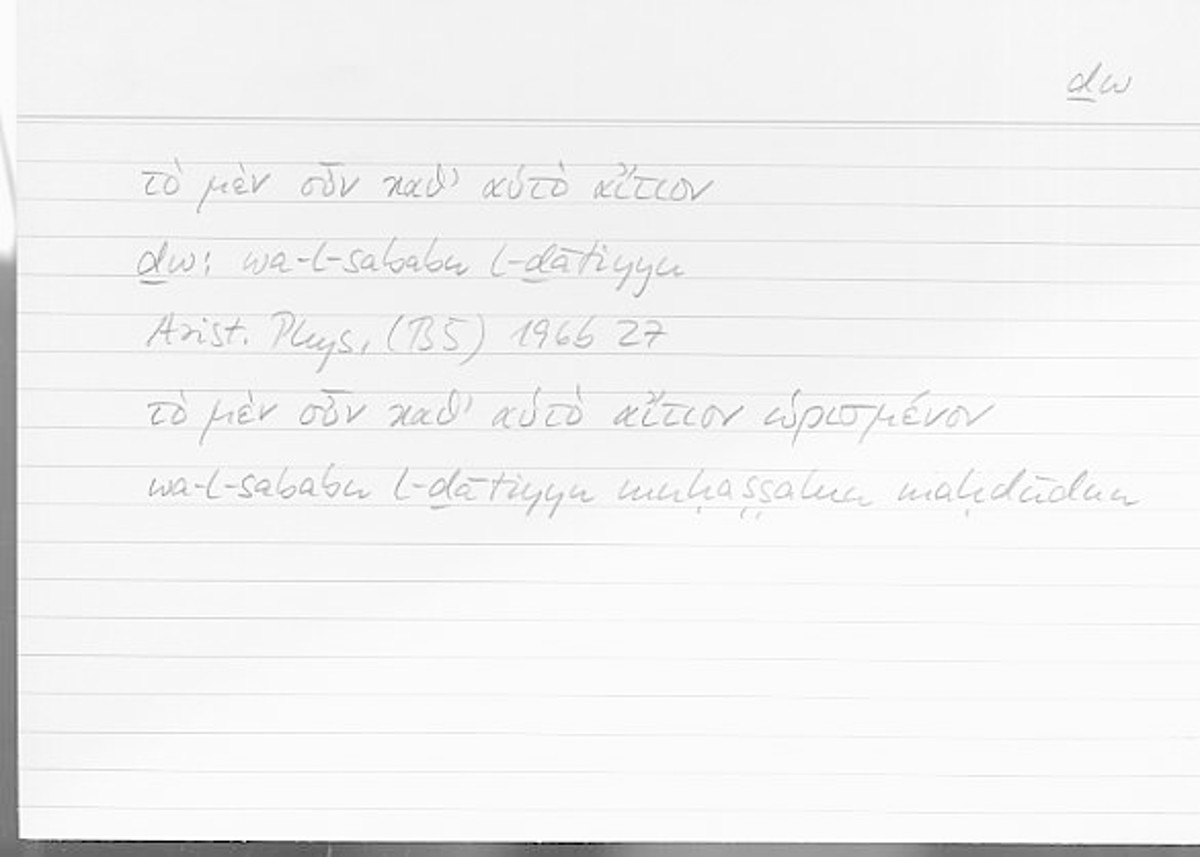 ḏw
τὸ μὲν οὖν καθ’ αὑτὸ αἴτιον
ḏw: wa-l-sababu l-ḏātiyyu
Arist. Phys. (B5) 196b 27
τὸ μὲν οὖν καθ’ αὑτὸ αἴτιον ὡρισμένον
wa-l-sababu l-ḏātiyyu muḥaṣṣalun maḥdūdun